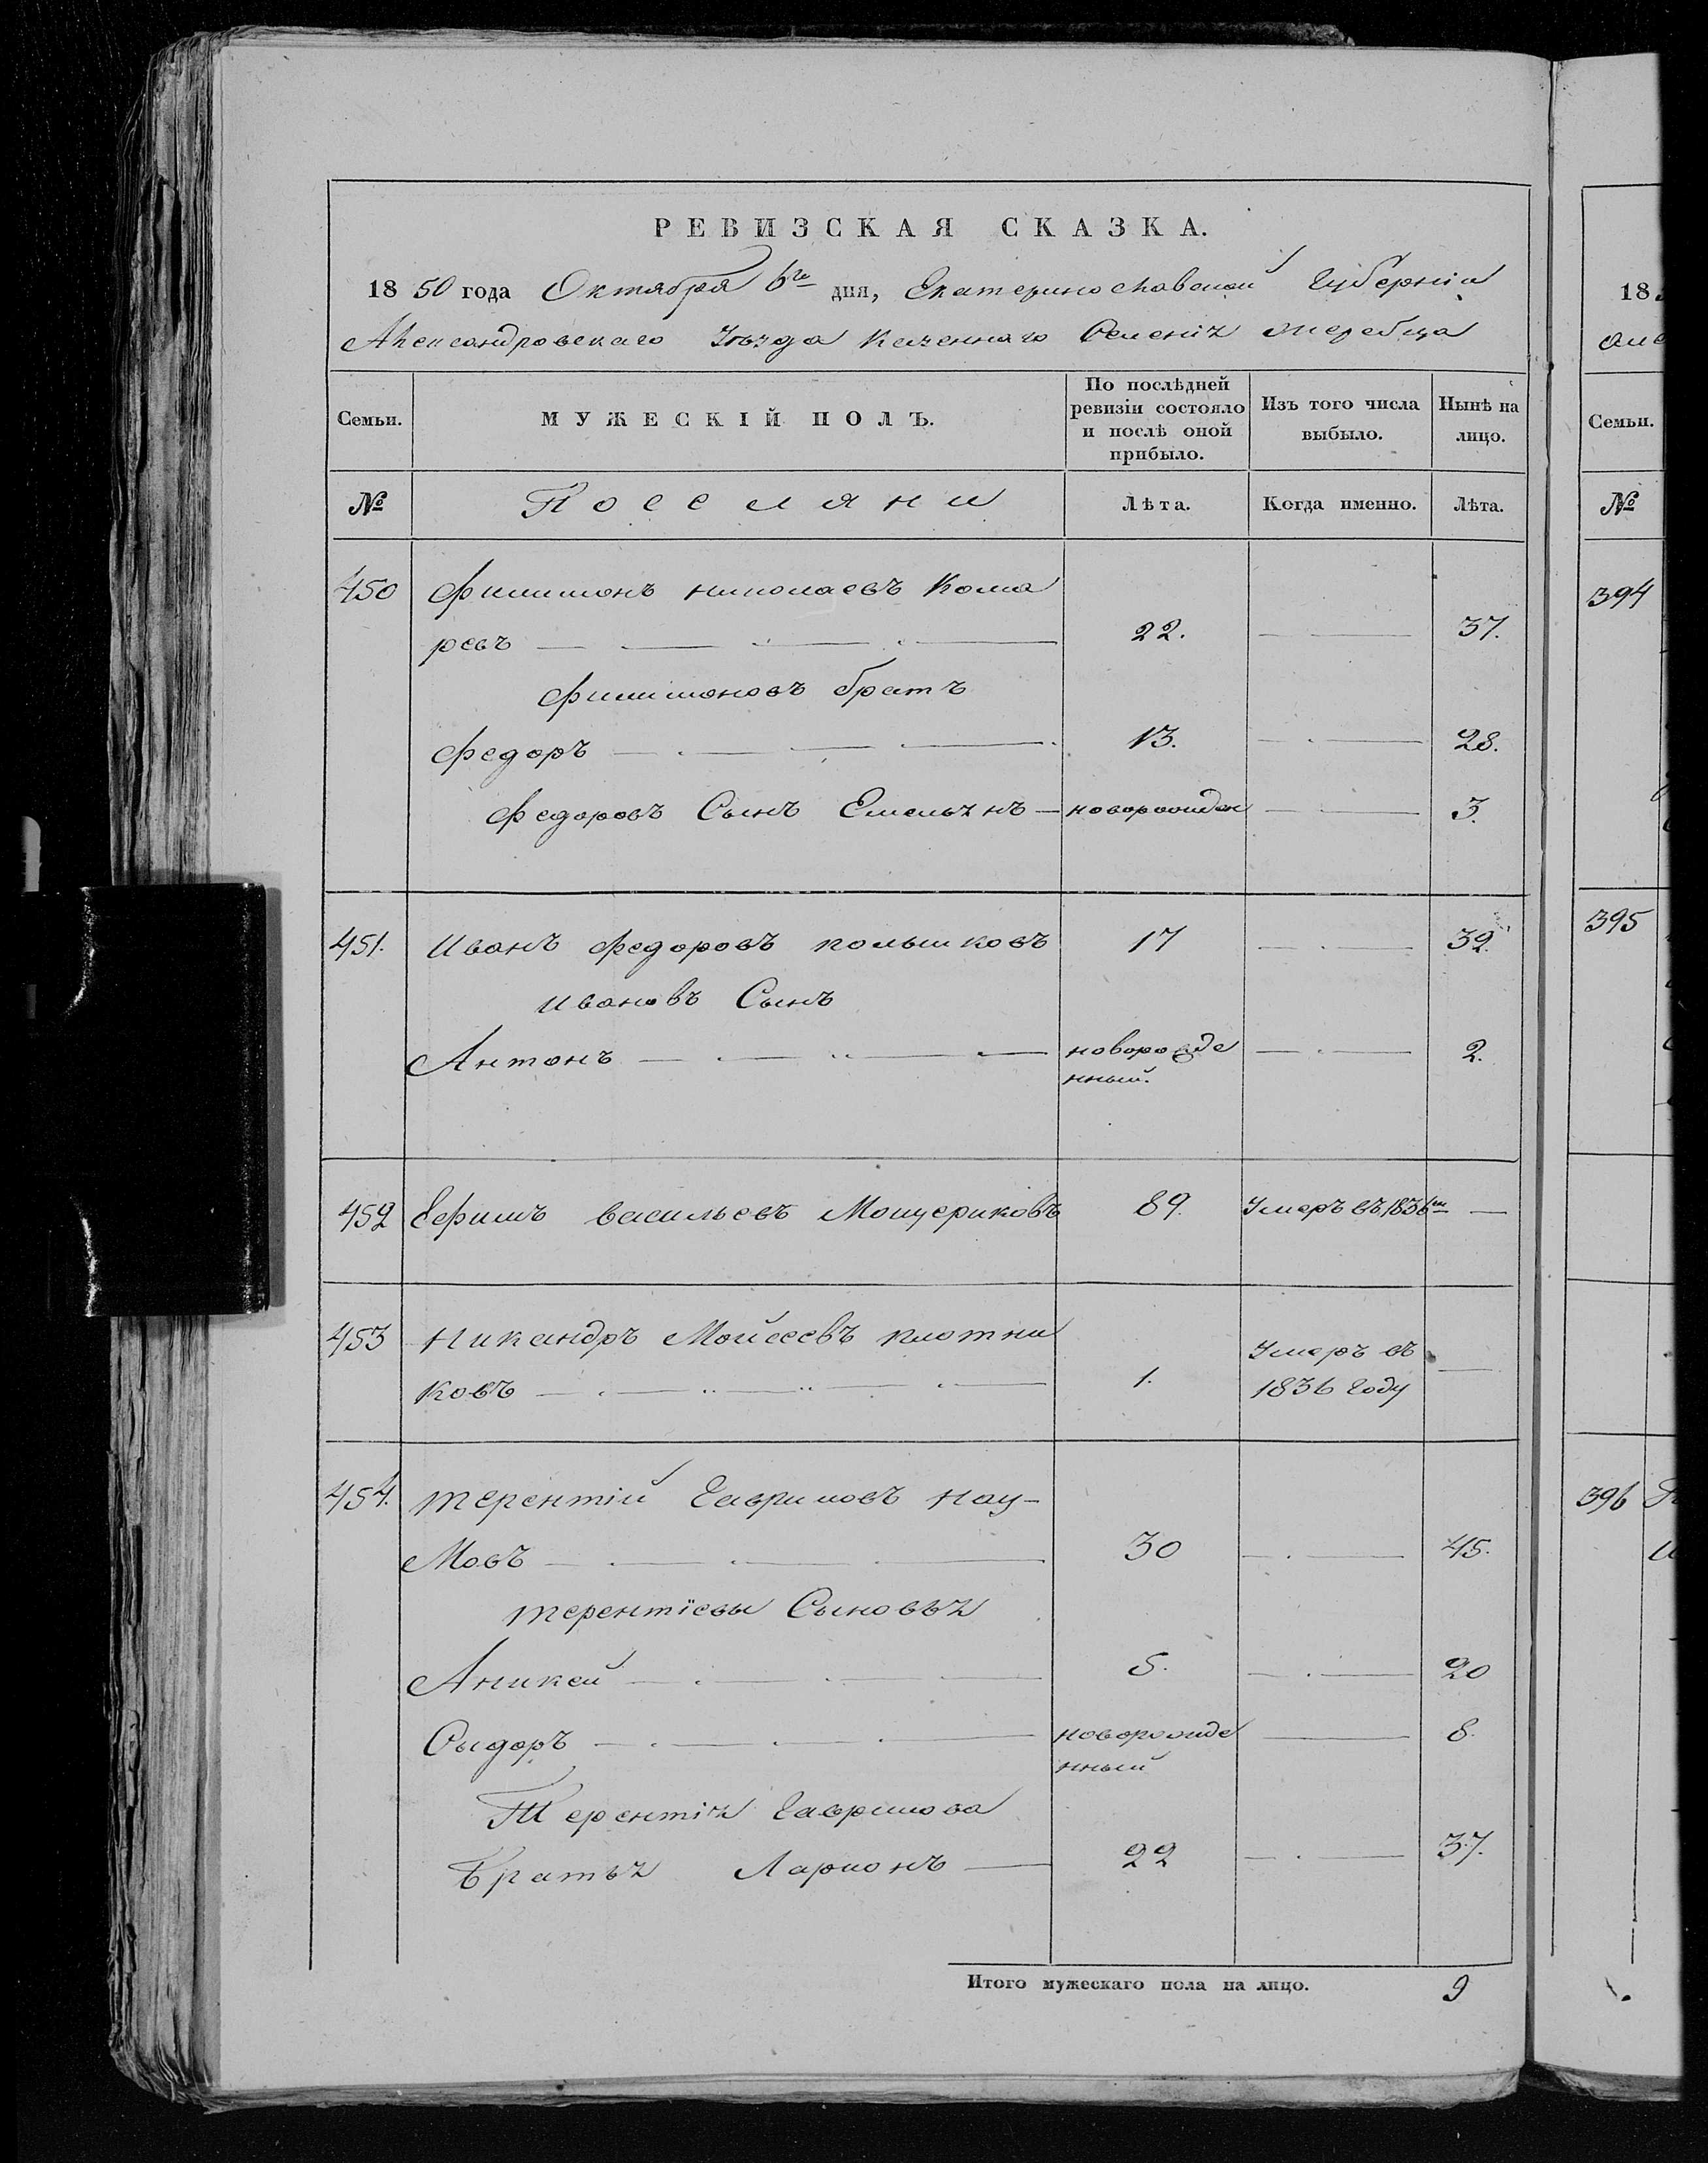 РЕВИЗСКАЯ СКАЗКА.
1850 года Октября 6го дня, Екатеринославской Губерніи
Александровскаго Уѣзда казеннаго Селенія Жеребца
Семьи.
МУЖЕСКІЙ ПОЛЪ.
По послѣдней ревизіи состояло и послѣ оной прибыло.
Изъ того числа выбыло.
Нынѣ на лицо.
№
Поселяни
Лѣта.
Когда именно.
Лѣта.
450 Филимонъ Николаевъ Кома
ревъ 22. 37.
Филимоновъ братъ
Федоръ 13. 28.
Федоровъ Сынъ Емельянъ новорожден 3.
451. Иванъ Федоровъ Полышковъ 17 32.
Ивановъ Сынъ
Антонъ новорожде 2.
нный.
452 Ефимъ Васильевъ Мощериковъ 89. Умеръ въ 1836м
453 Никандръ Мойсеевъ Плотни
ковъ 1. Умеръ въ
1836 году
454. Терентій Гавриловъ Нау-
мовъ 30 45.
Терентіевы Сыновья
Аникей 5. 20
Сыдоръ новорожде 8.
нный
Терентія Гаврилова
Братья Ларионъ 22 37.
Итого мужескаго пола на лицо. 9
18
Семьи.
№
394
395
396